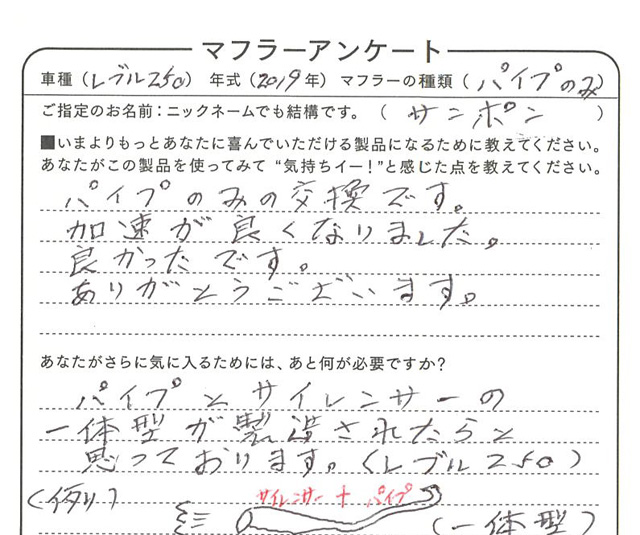 マフラーアンケート
車種（レブル250） 年式（2019年） マフラーの種類（パイプのみ）
ご指定のお名前：ニックネームでも結構です。（ サンポン ）
■いまよりもっとあなたに喜んでいただける製品になるために教えてください。
あなたがこの製品を使ってみて “気持ちイー！”と感じた点を教えてください。
パイプのみの交換です。
加速が良くなりました。
良かったです。
ありがとうございます。
あなたがさらに気に入るためには、あと何が必要ですか？
パイプとサイレンサーの
一体型が製造されたらと
思っております。（レブル250）
（例り）
サイレンサー + パイプ
（一体型）